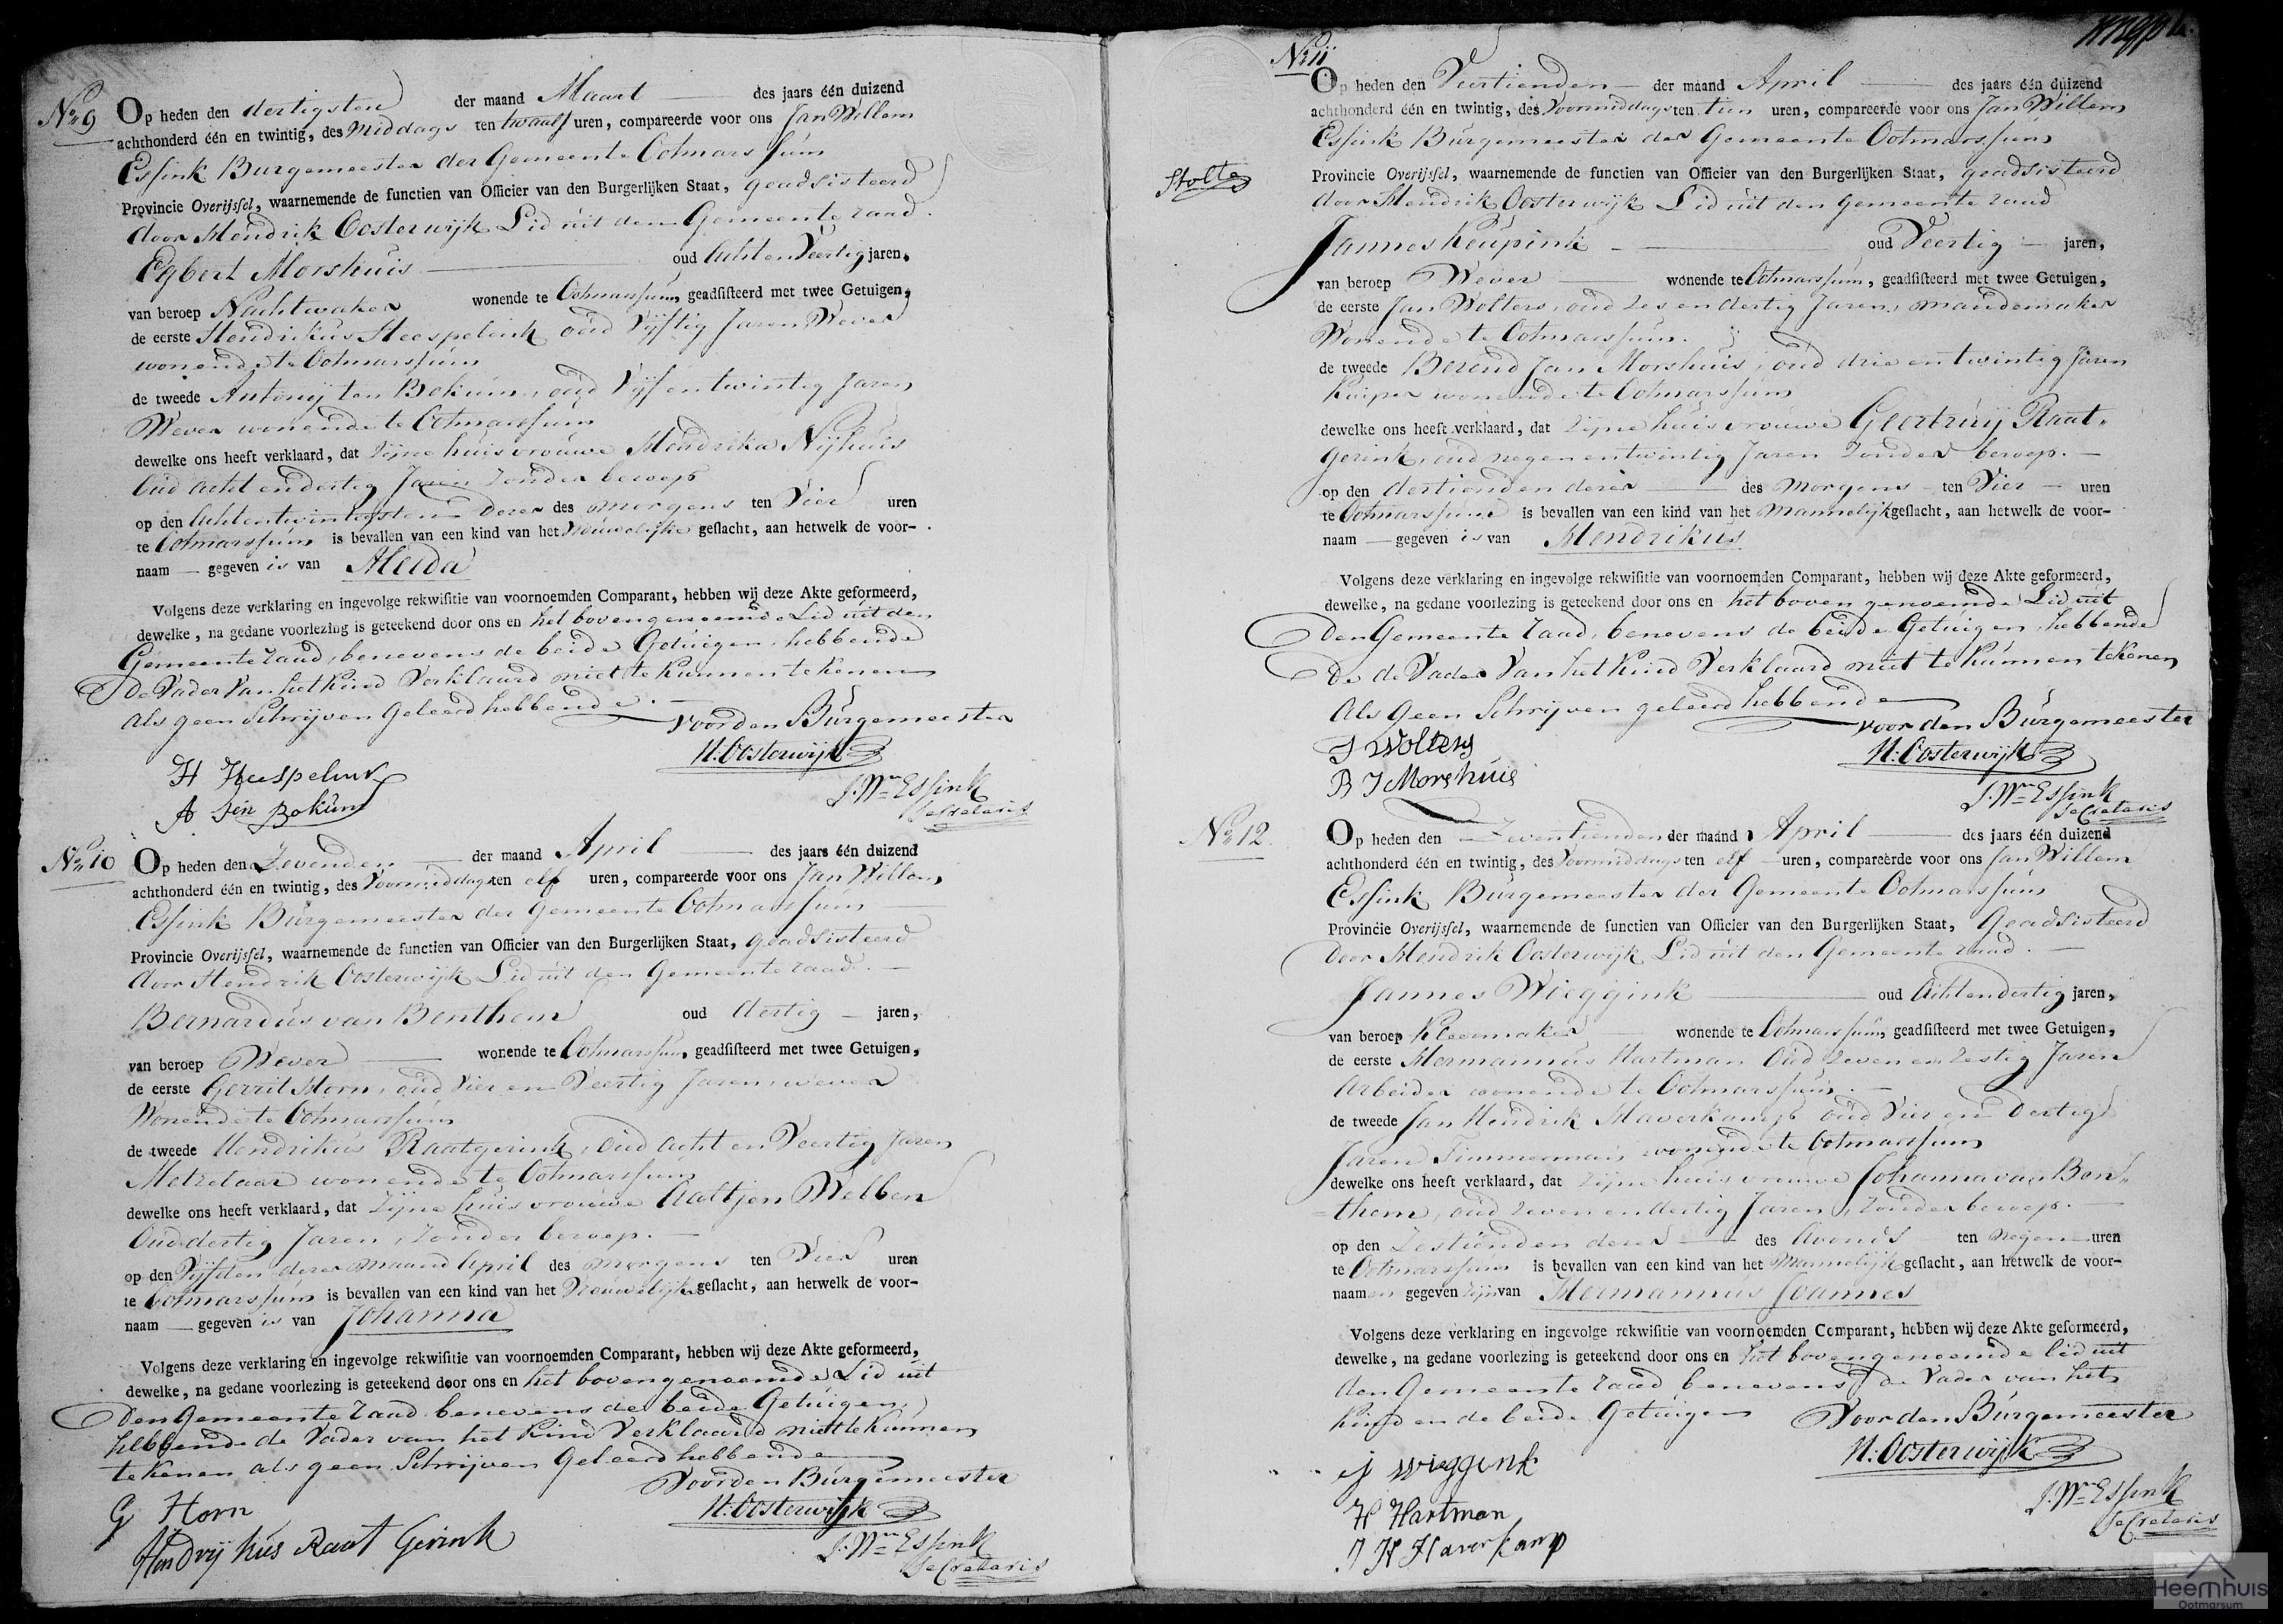 No 9
Op heden den dertigsten der maand Maart des jaars één duizend
achthonderd één en twintig, des middags ten twaalf uren, compareerde voor ons Jan Willem
Essink Burgemeester der Gemeente Ootmarssum
Provincie Overijssel, waarnemende de functien van Officier van den Burgerlijken Staat, geadsisteerd
door Hendrik Oosterwijk Lid uit den Gemeente raad.
Egbert Morshuis oud Acht en Veertig jaren,
van beroep Nachtwaker wonende te Ootmarssum, geadsisteerd met twee Getuigen,
de eerste Hendrikus Heespelink oud Vijftig Jaren Wever
wonende te Ootmarssum
de tweede Antonij ten Bokum, oud Vijf en twintig Jaren
Wever wonende te Ootmarssum
dewelke ons heeft verklaard, dat zijne huisvrouwe Hendrika Nijhuis
Oud acht en dertig Jaren zonder beroep
op den Achtentwintigsten dezer des morgens ten Vier uren
te Ootmarssum is bevallen van een kind van het Vrouwelijke geslacht, aan hetwelk de voor-
naam — gegeven is van Aleida
Volgens deze verklaring en ingevolge rekwisitie van voornoemden Comparant, hebben wij deze Akte geformeerd,
dewelke, na gedane voorlezing is geteekend door ons en het bovengenoemde Lid uit den
Gemeente raad, benevens de beide Getuigen, hebbende
de Vader van het Kind Verklaard niet te kunnen tekenen
als geen Schrijven Geleerd hebbende.
Voor den Burgemeester
H. Oosterwijk
H Heespelink
A ten Bokum
J. Wm Essink
Secretaris
No 10
Op heden den Zevenden der maand April des jaars één duizend
achthonderd één en twintig, des Voormiddags ten elf uren, compareerde voor ons Jan Willem
Essink Burgemeester der Gemeente Ootmarssum
Provincie Overijssel, waarnemende de functien van Officier van den Burgerlijken Staat, geadsisteerd
door Hendrik Oosterwijk Lid uit den Gemeente raad.
Bernardus van Benthem oud dertig jaren,
van beroep Wever wonende te Ootmarssum, geadsisteerd met twee Getuigen,
de eerste Gerrit Horn, oud Vier en Veertig Jaren, wever
Wonende te Ootmarssum
de tweede Hendrikus Raatgerink, oud acht en Veertig Jaren
Metzelaar wonende te Ootmarssum
dewelke ons heeft verklaard, dat zijne huisvrouwe Aaltjen Welben
Oud dertig Jaren, zonder beroep.
op den Vijfden dezer maand April des morgens ten Vier uren
te Ootmarssum is bevallen van een kind van het Vrouwelijk geslacht, aan hetwelk de voor-
naam — gegeven is van Johanna
Volgens deze verklaring en ingevolge rekwisitie van voornoemden Comparant, hebben wij deze Akte geformeerd,
dewelke, na gedane voorlezing is geteekend door ons en het bovengenoemde Lid uit
den Gemeente raad benevens de beide Getuigen,
hebbende de Vader van het Kind Verklaard niet te kunnen
tekenen als geen Schrijven Geleerd hebbende
Voor den Burgemeester
H. Oosterwijk
G Horn
Hendrijkus Raat Gerink
J. Wm Essink
Secretaris
No 11
Op heden den Veertienden der maand April des jaars één duizend
achthonderd één en twintig, des Voormiddags ten tien uren, compareerde voor ons Jan Willem
Essink Burgemeester der Gemeente Ootmarssum
Stolte
Provincie Overijssel, waarnemende de functien van Officier van den Burgerlijken Staat, geadsisteerd
door Hendrik Oosterwijk Lid uit den Gemeente raad
Jannes Keupink oud Veertig jaren,
van beroep Wever wonende te Ootmarssum, geadsisteerd met twee Getuigen,
de eerste Jan Wolters, oud Zes en dertig Jaren, mandemaker
Wonende te Ootmarssum.
de tweede Berend Jan Morshuis, oud drie en twintig Jaren
Kuiper wonende te Ootmarssum
dewelke ons heeft verklaard, dat zijne huisvrouwe Geertruij Raat-
gerink, oud negen en twintig Jaren zonder beroep.
op den dertienden dezer des morgens ten Vier uren
te Ootmarssum is bevallen van een kind van het Mannelijk geslacht, aan hetwelk de voor-
naam — gegeven is van Hendrikus
Volgens deze verklaring en ingevolge rekwisitie van voornoemden Comparant, hebben wij deze Akte geformeerd,
dewelke, na gedane voorlezing is geteekend door ons en het boven genoemde Lid uit
den Gemeente raad, benevens de beide Getuigen, hebbende
de de Vader van het Kind Verklaard niet te kunnen tekenen
Als Geen Schrijven geleerd hebbende
voor den Burgemeester
H. Oosterwijk
J Wolters
B J Morshuis
J. Wm Essink
Secretaris
No 12.
Op heden den Zeventienden der maand April des jaars één duizend
achthonderd één en twintig, des Voormiddags ten elf uren, compareerde voor ons Jan Willem
Essink Burgemeester der Gemeente Ootmarssum
Provincie Overijssel, waarnemende de functien van Officier van den Burgerlijken Staat, Geadsisteerd
Door Hendrik Oosterwijk Lid uit den Gemeente raad.
Jannes Wieggink oud Acht en dertig jaren,
van beroep Kleermaker wonende te Ootmarssum, geadsisteerd met twee Getuigen,
de eerste Hermannus Hartman Oud Zeven en Zestig Jaren
Arbeider wonende te Ootmarssum.
de tweede Jan Hendrik Haverkamp oud Vier en dertig
Jaren Timmerman, wonende te Ootmarssum
dewelke ons heeft verklaard, dat zijne huisvrouwe Johanna van Ben-
them, oud Zeven en dertig Jaren, zonder beroep.
op den Zestienden dezer des Avonds ten negen uren
te Ootmarssum is bevallen van een kind van het Mannelijk geslacht, aan hetwelk de voor-
naamen gegeven zijn van Hermannus Joannes
Volgens deze verklaring en ingevolge rekwisitie van voornoemden Comparant, hebben wij deze Akte geformeerd,
dewelke, na gedane voorlezing is geteekend door ons en het bovengenoemde lid uit
den Gemeente raad benevens de Vader van het
Kind en de beide Getuigen
Voor den Burgemeester
H. Oosterwijk
J Wieggink
H Hartman
J H Haverkamp
J. Wm Essink
Secretaris
Heemhuis
Ootmarsum